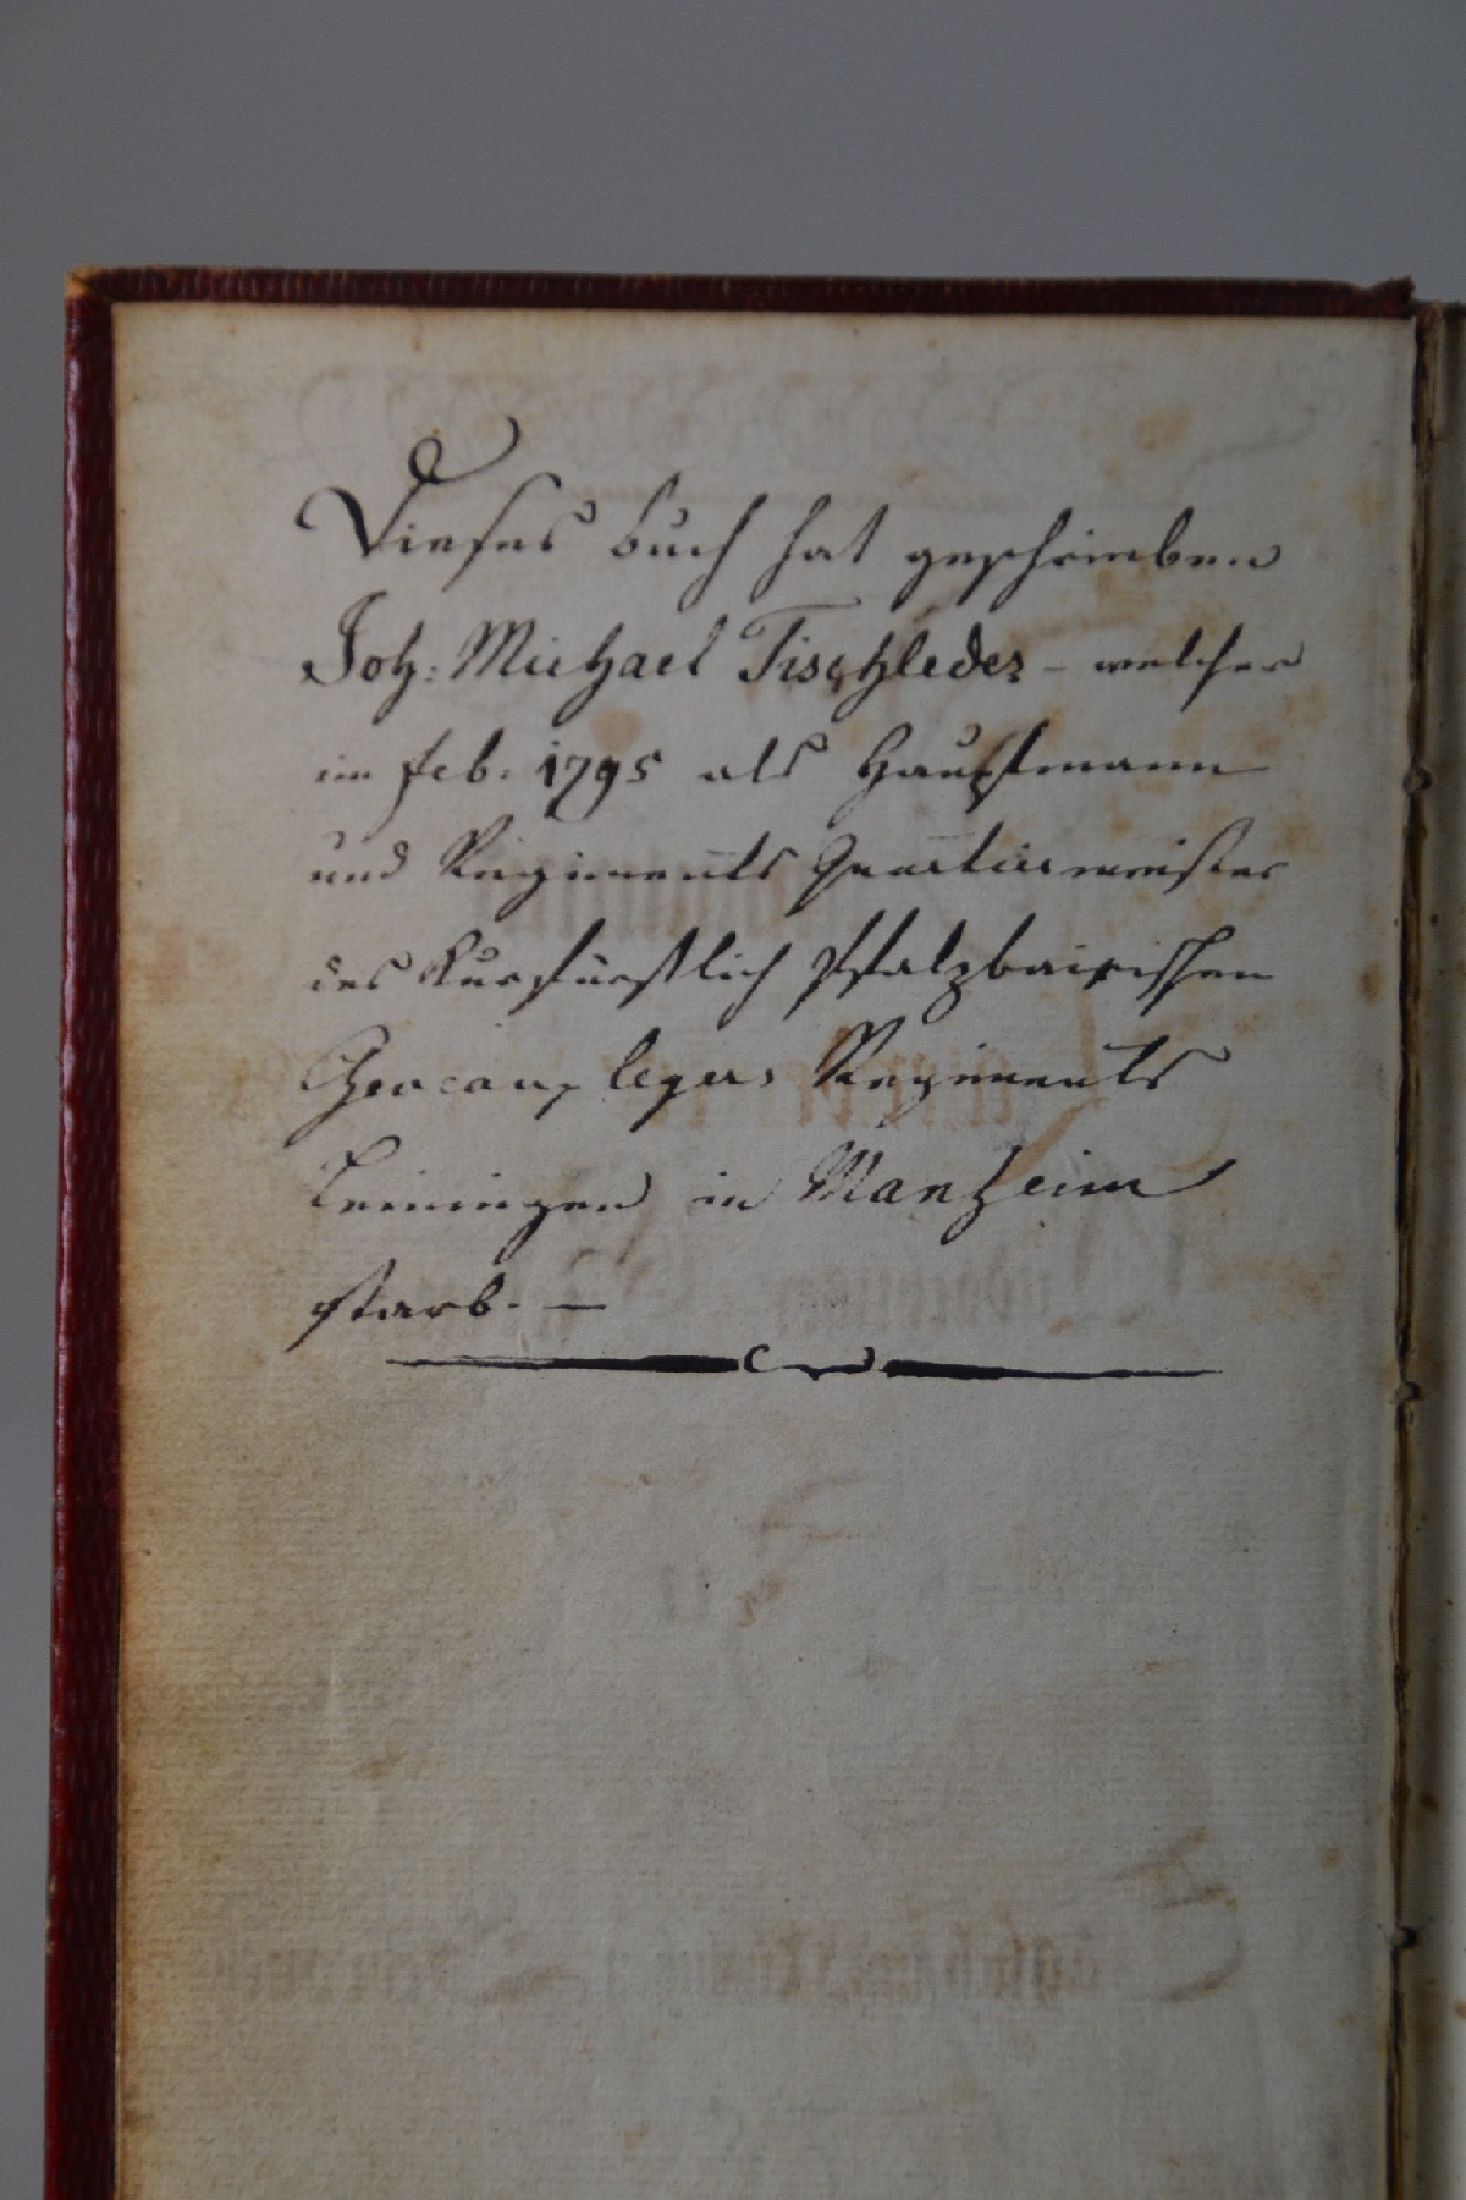 Dieses buch hat geschrieben
Joh: Michael Tischleder - welcher
im feb. 1795 als Hauptmann
und Regiments Quartiermeister
des Kurfürstlich Pfalzbairischen
legers Regiments
Leiningen in Manheim
starb. —